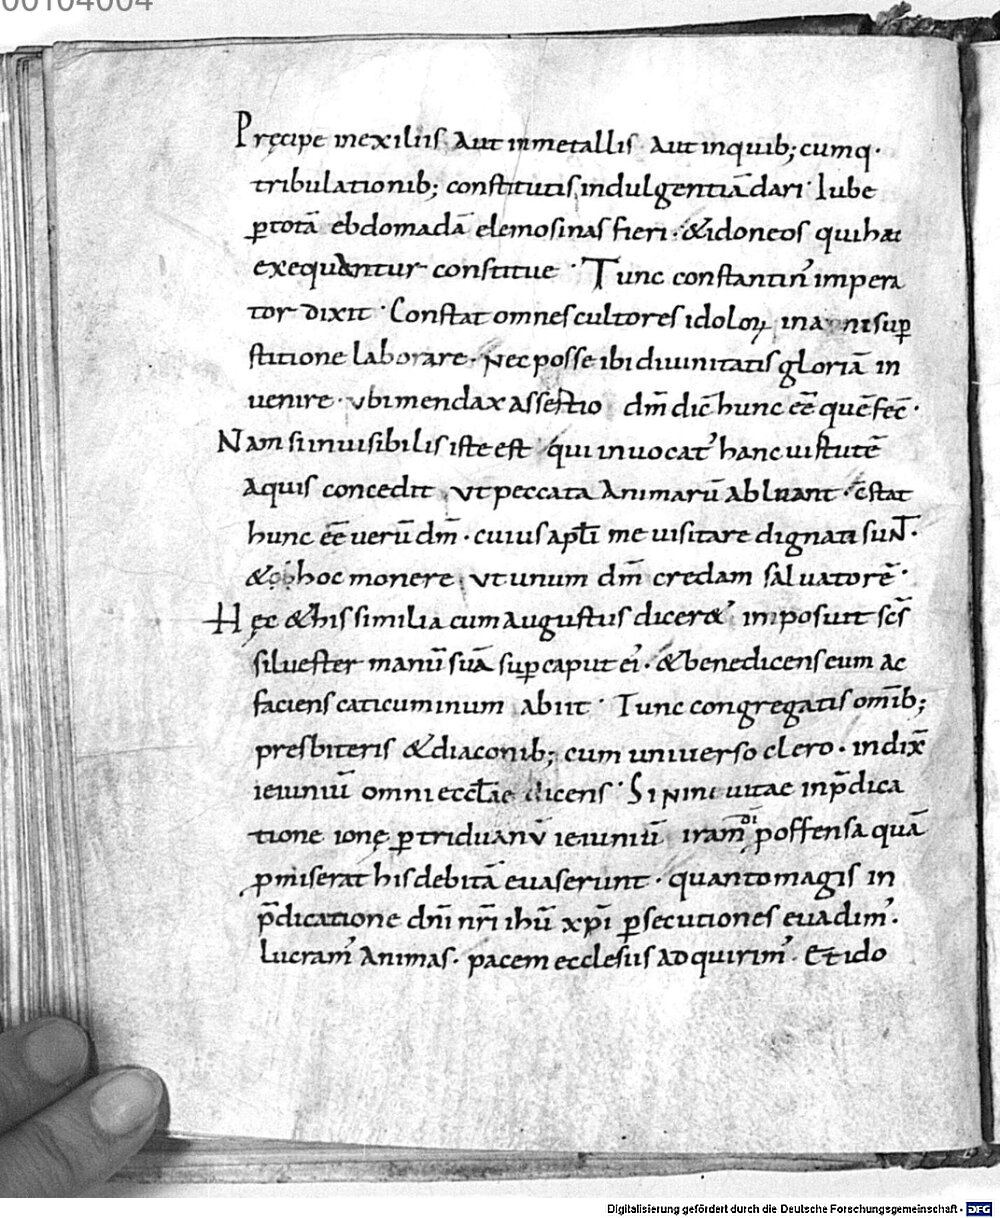 00104004
Precipe inexiliis aut inmetallis aut inquib; cumq·
tribulationib; constitutis indulgentiā dari· Iube
ꝑtotā ebdomadā elemosinas fieri· &idoneos quihæc
exequantur constitue · Tunc constantin' impera
tor dixit · Constat omnes cultores idoloꝝ inani suꝑ
stitione laborare· Nec posse ibi diuinitatis gloriā in
uenire· ubi mendax assertio dm̄ dic̄ hunc eē quē fec̄·
Nam si inuisibilis iste est qui inuocat' hanc uirtutē
aquis concedit ut peccata animarū abluant· c̄stat
hunc eē uerū dm̄· cuius apl̄i me uisitare dignati sunt·
& ob hoc monere ut unum dm̄ credam saluatorē·
Hęc &his similia cum augustus dicer&' imposuit sc̄s
siluester manū suā suꝑ caput ei'· &benedicens eum ac
faciens caticuminum abiit · Tunc congregatis om̄ib;
presbiteris &diaconib; cum uniuerso clero· indix̄
ieiuniū omni eccl̄ae dicens · Si niniuitae inp̄dica
tione ionę ꝑ triduanū ieiuniū iram di ꝓ offensa quā
ꝓmiserat his debitā euaserunt· quanto magis in
p̄dicatione dn̄i nr̄i ihū xp̄i ꝑsecutiones euadim'·
lucram' animas· pacem ecclesiis adquirim'· Et ido
Digitalisierung gefördert durch die Deutsche Forschungsgemeinschaft - DFG